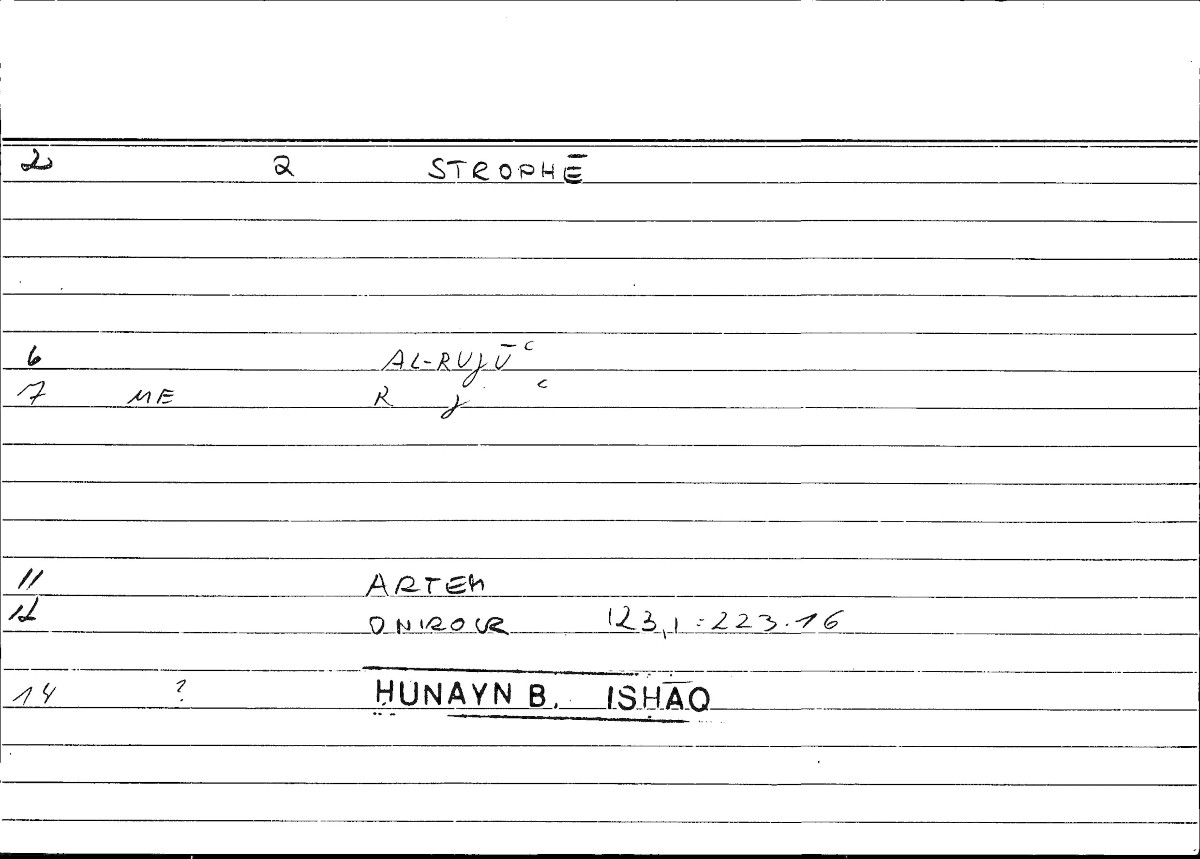 2 2 STROPHĒ
6 AL-RUJŪʿ
7 ME R J ʿ
11 ARTEM
12 ONIROCR 123,1 : 223.16
14 ? ḤUNAYN B. ISḤĀQ